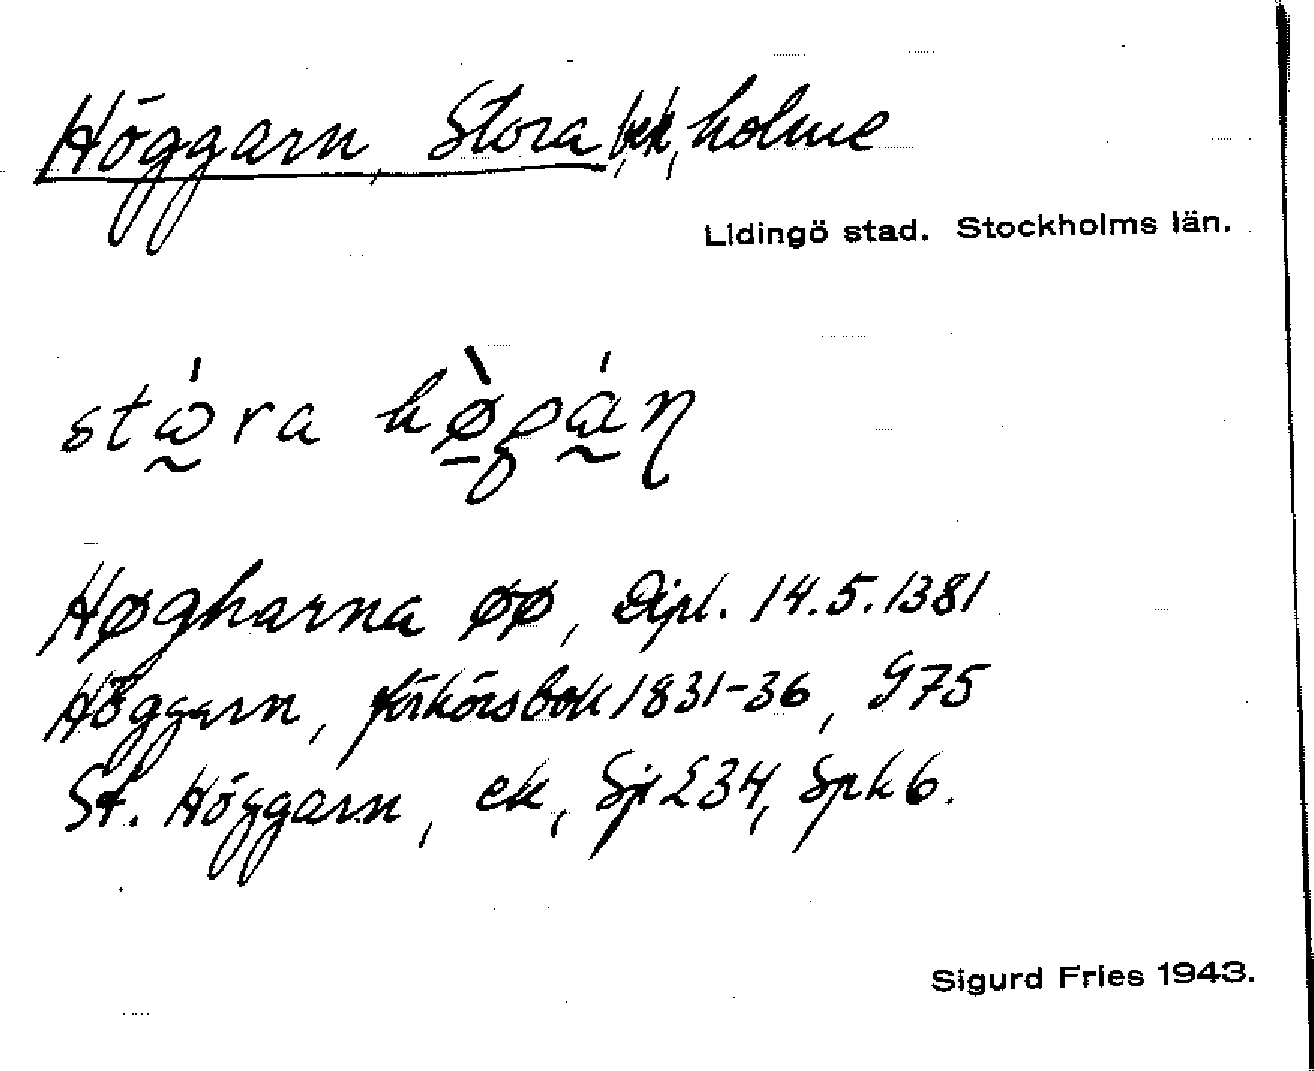 Höggarn, Stora bek, holme
Lidingö stad. Stockholms län.
stɷ́ra hø̀gán
Høgharna øø, Dipl. 14.5.1381
Höggarn, förhörsbok 1831-36, 975
St. Höggarn, ek, Sjk 234, Spk 6.
Sigurd Fries 1943.